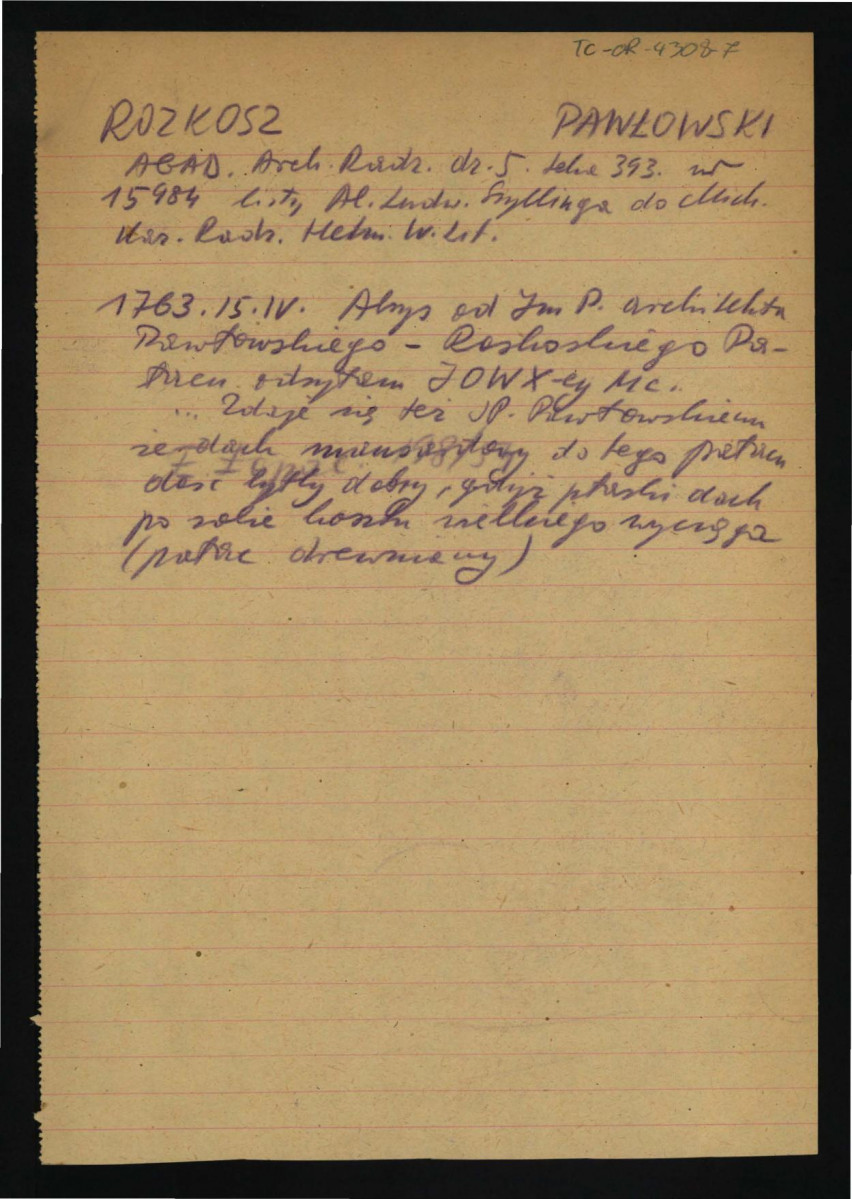 TC-OR-4308-7
ROZKOSZ PAWŁOWSKI
AGAD. Arch. Radz. dz. 5. teka 393. nr
15984 listy Al. Ludw. Szyllinga do Mich.
Kaz. Radz. Hetm. W. Lit.
1763.15.IV. Abrys od Jm P. architekta
Pawłowskiego – Roskoskiego Pa-
łacu odsyłam JOWX-cy Mc.
... Zdaje się też JP. Pawłowskiemu
że dach mansartowy do tego pałacu
dość byłby dobry, gdyż płaski dach
po sobie kosztu wielkiego wyciąga
(pałac drewniany)